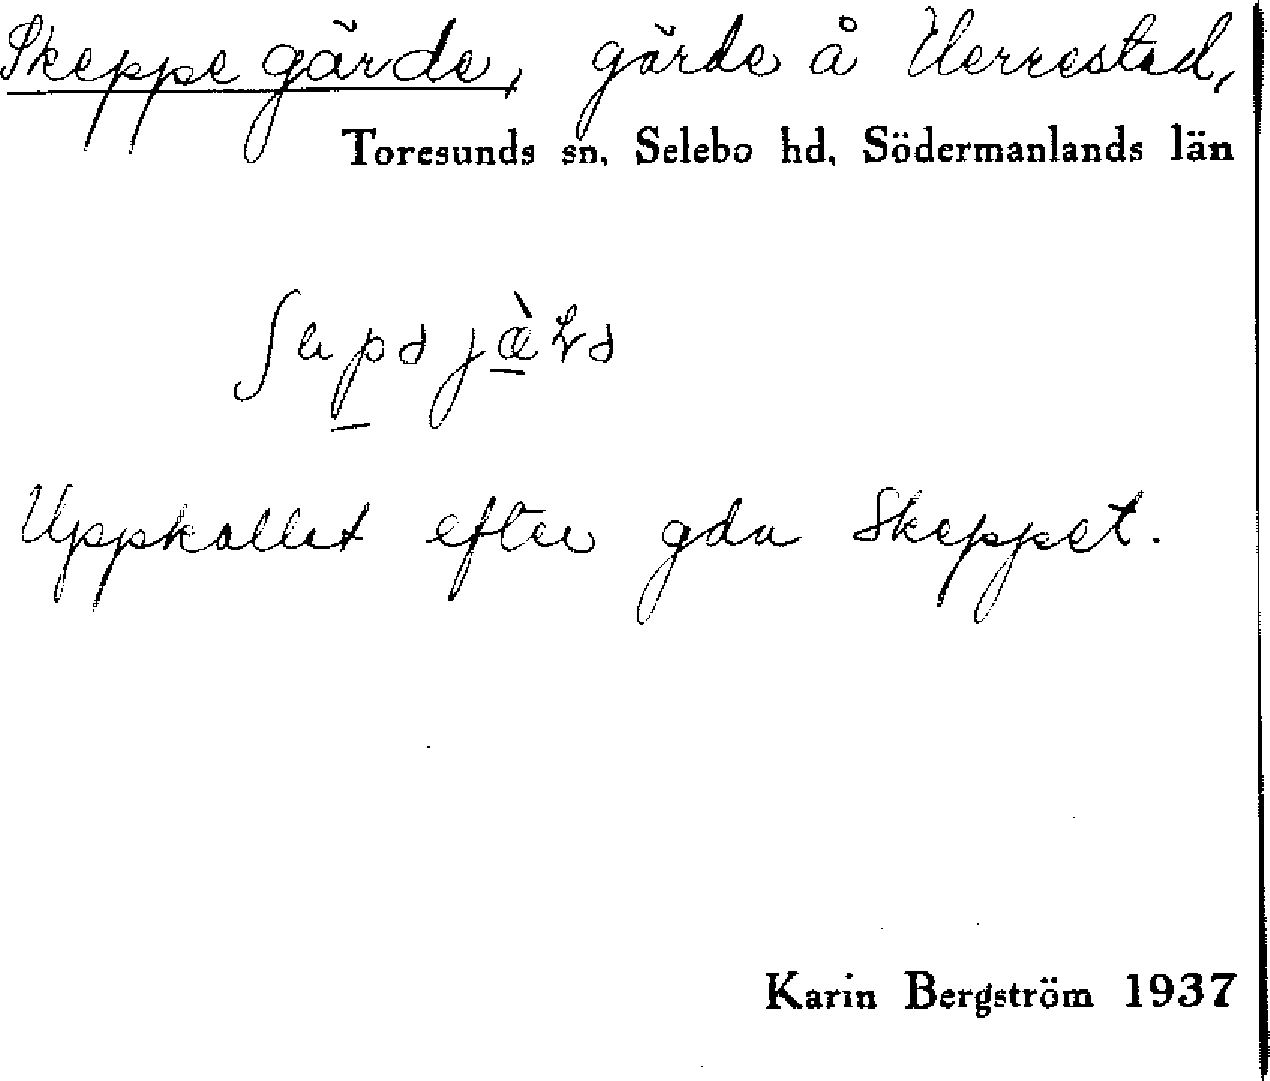 Skeppegärde, gärde å Herrestad,
Toresunds sn, Selebo hd, Södermanlands län
Uppkallat efter gdn Skeppet.
Karin Bergström 1937